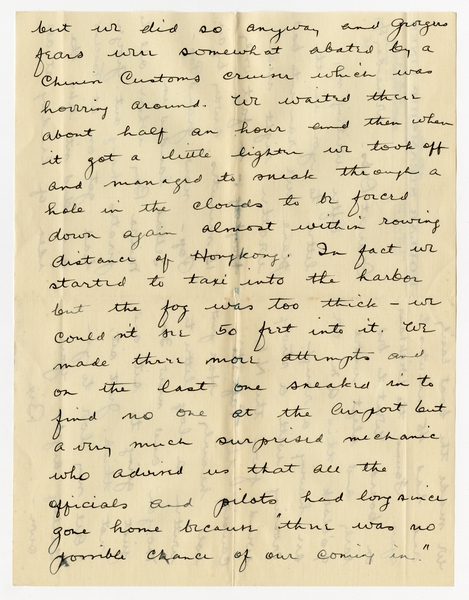 but we did so anyway and Georges
fears were somewhat abated by a
Chinese Customs cruiser which was
hovering around. We waited there
about half an hour and then when
it got a little lighter we took off
and managed to sneak through a
hole in the clouds to be forced
down again almost within rowing
distance of Hongkong. In fact we
started to taxi into the harbor
but the fog was too thick - we
couldn't see 50 feet into it. We
made three more attempts and
on the last one sneaked in to
find no one at the airport but
a very much surprised mechanic
who advised us that all the
officials and pilots had long since
gone home because "there was no
possible chance of our coming in."